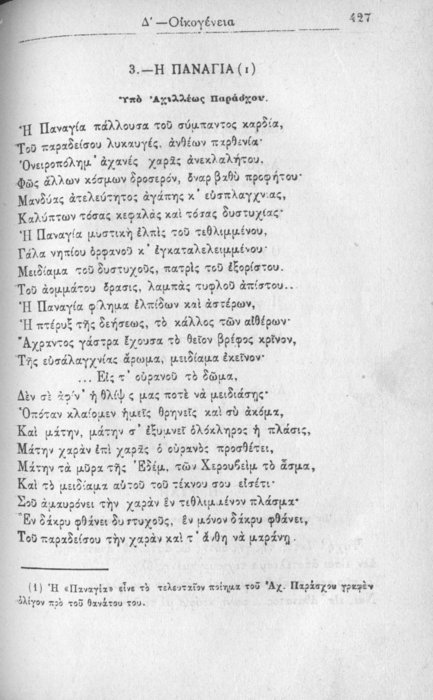 Δ΄ —Οἰκογένεια
427
3.—Η ΠΑΝΑΓΙΑ (1)
Ὑπὸ Ἀχιλλέως Παράσχου.
Ἡ Παναγία πάλλουσα τοῦ σύμπαντος καρδία,
Τοῦ παραδείσου λυκαυγές, ἀνθέων παρθενία·
Ὀνειροπόλημ᾿ ἀχανές χαρᾶς ἀνεκλαλήτου.
Φῶς ἄλλων κόσμων δροσερόν, ὄναρ βαθὺ προφήτου·
Μανδύας ἀτελεύτητος ἀγάπης κ᾿ εὐσπλαγχνίας,
Καλύπτων τόσας κεφαλὰς καὶ τόσας δυστυχίας·
Ἡ Παναγία μυστικὴ ἐλπὶς τοῦ τεθλιμμένου,
Γάλα νηπίου ὀρφανοῦ κ᾿ ἐγκαταλελειμμένου·
Μειδίαμα τοῦ δυστυχοῦς, πατρὶς τοῦ ἐξορίστου.
Τοῦ ἀομμάτου ὅρασις, λαμπὰς τυφλοῦ ἀπίστου..
Ἡ Παναγία φίλημα ἐλπίδων καὶ ἀστέρων,
Ἡ πτέρυξ τῆς δεήσεως, τὸ κάλλος τῶν αἰθέρων·
Ἄχραντος γάστρα ἔχουσα τὸ θεῖον βρέφος κρῖνον,
Τῆς εὐσπλαγχνίας ἄρωμα, μειδίαμα ἐκεῖνον·
... Εἰς τ᾿ οὐρανοῦ τὸ δῶμα,
Δὲν σὲ ἀφίν᾿ ἡ θλῖψις μας ποτὲ νὰ μειδιάσῃς·
Ὁπόταν κλαίομεν ἡμεῖς θρηνεῖς καὶ σὺ ἀκόμα,
Καὶ μάτην, μάτην σ᾿ ἐξυμνεῖ ὁλόκληρος ἡ πλάσις,
Μάτην χαρὰν ἐπὶ χαρᾶς ὁ οὐρανὸς προσθέτει,
Μάτην τὰ μῦρα τῆς Ἐδέμ, τῶν Χερουβεὶμ τὸ ἆσμα,
Καὶ τὸ μειδίαμα αὐτοῦ τοῦ τέκνου σου εἰσέτι·
Σοῦ ἀμαυρόνει τὴν χαρὰν ἓν τεθλιμμένον πλάσμα·
Ἓν δάκρυ φθάνει δυστυχοῦς, ἓν μόνον δάκρυ φθάνει,
Τοῦ παραδείσου τὴν χαρὰν καὶ τ᾿ ἄνθη νὰ μαράνῃ.
(1) Ἡ «Παναγία» εἶνε τὸ τελευταῖον ποίημα τοῦ Ἀχ. Παράσχου γραφὲν
ὀλίγον πρὸ τοῦ θανάτου του.